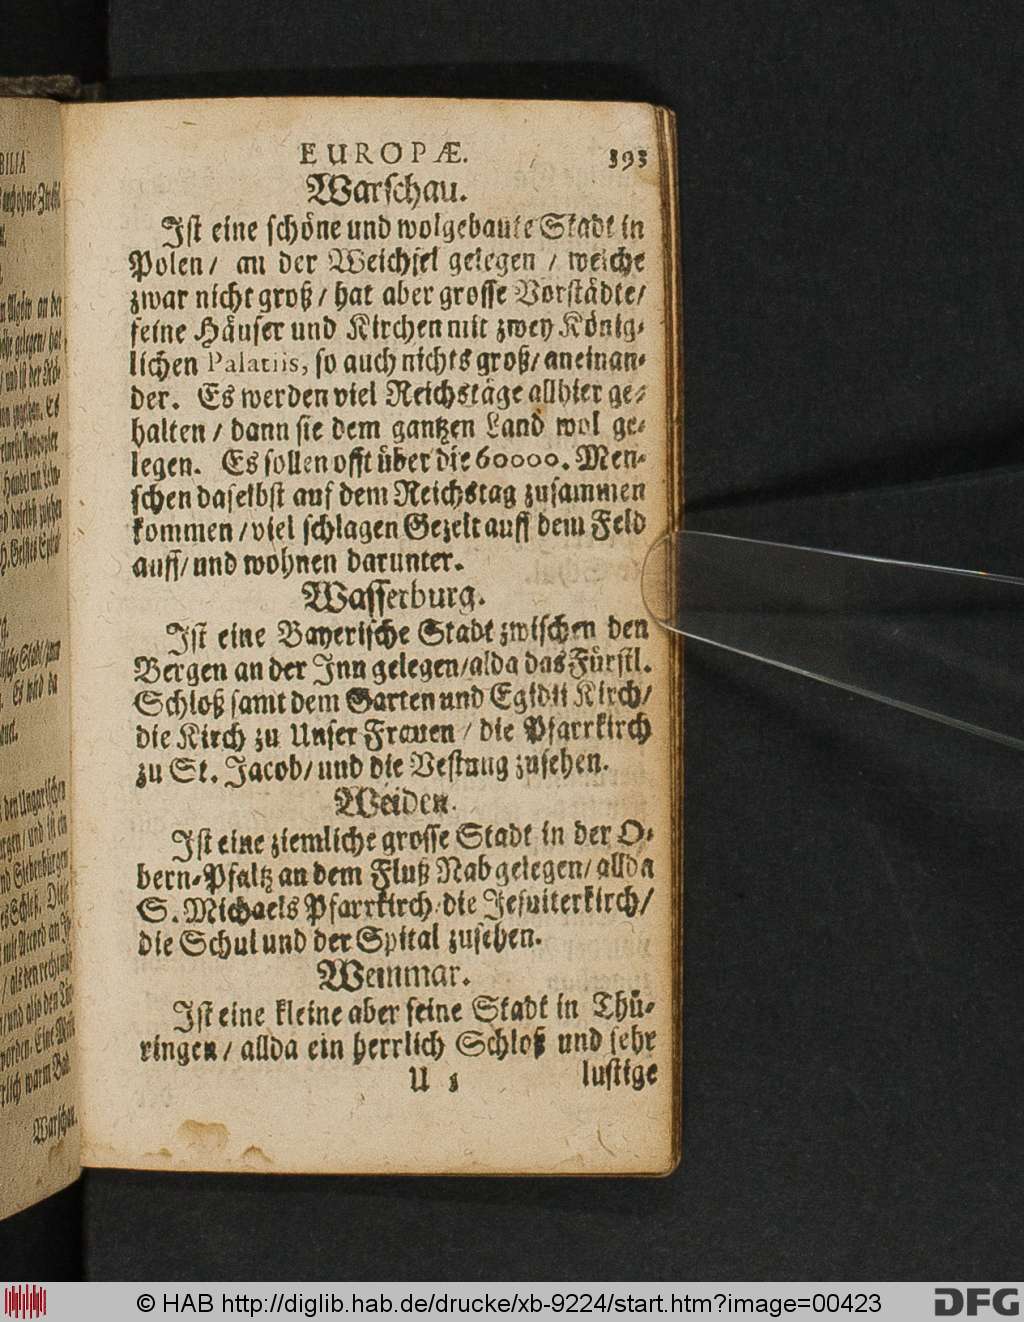 EUROPÆ. 393
Warschau.
Ist eine schöne und wolgebaute Stadt in
Polen/ an der Weichsel gelegen / welche
zwar nicht groß / hat aber grosse Vorstädte/
feine Häuser und Kirchen mit zwey König-
lichen Palatiis, so auch nichts groß/ aneinan-
der. Es werden viel Reichstäge allhier ge-
halten / dann sie dem gantzen Land wol ge-
legen. Es sollen offt über die 60000. Men-
schen daselbst auf dem Reichstag zusammen
kommen / viel schlagen Gezelt auff dem Feld
auff/ und wohnen darunter.
Wasserburg.
Ist eine Bayerische Stadt zwischen den
Bergen an der Inn gelegen/ alda das Fürstl.
Schloß samt dem Garten und Egidii Kirch/
die Kirch zu Unser Frauen / die Pfarrkirch
zu St. Jacob/ und die Vestung zusehen.
Weiden.
Ist eine ziemliche grosse Stadt in der O-
bern-Pfaltz an dem Fluß Nab gelegen/ allda
S. Michaels Pfarrkirch/ die Jesuiterkirch/
die Schul und der Spital zusehen.
Weinmar.
Ist eine kleine aber feine Stadt in Thü-
ringen/ allda ein herrlich Schloß und sehr
U 5 lustige
Warschau.
© HAB http://diglib.hab.de/drucke/xb-9224/start.htm?image=00423
DFG